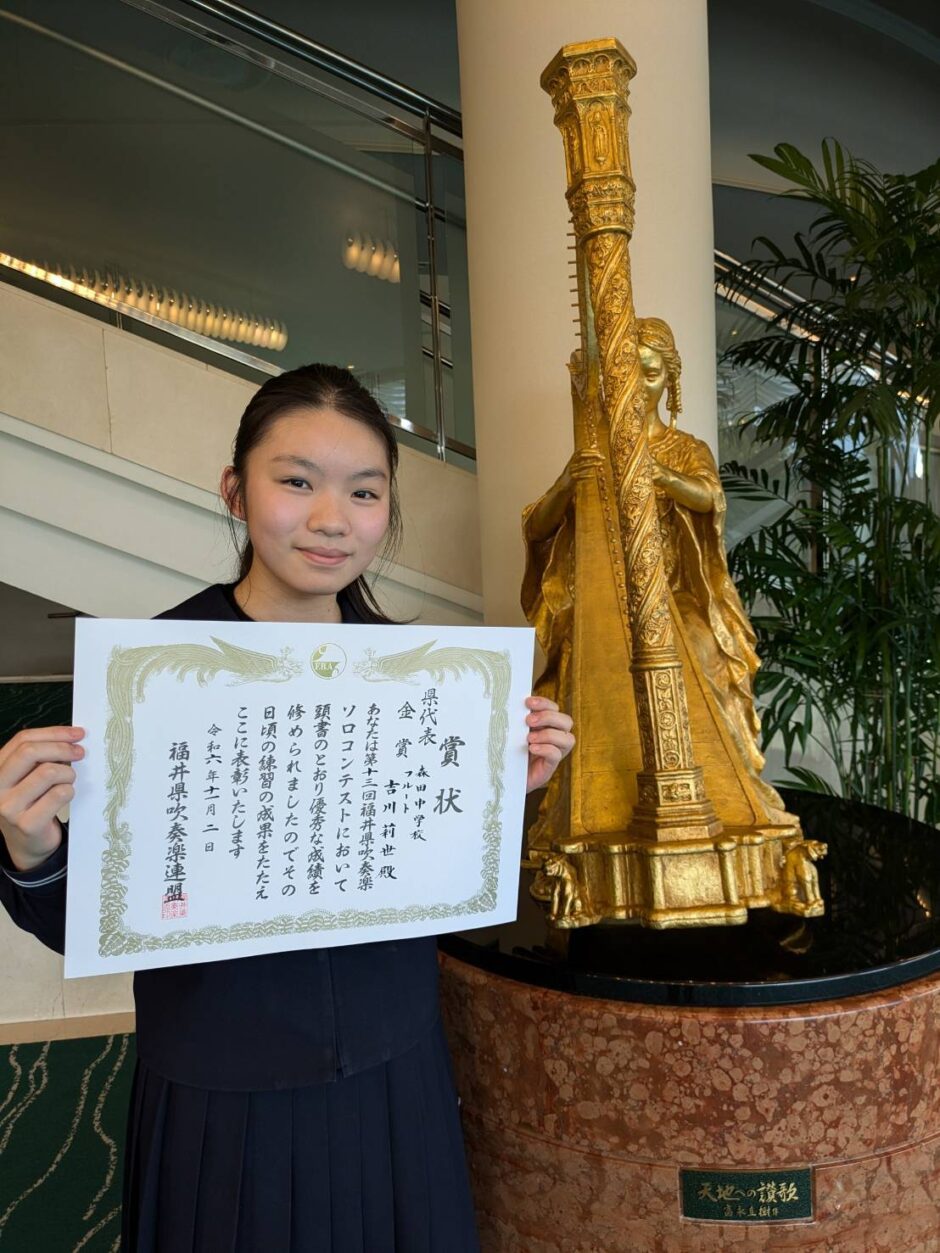 FBA
賞状
県代表
金賞
森田中学校
フルート
吉川莉世殿
あなたは第十三回福井県吹奏楽
ソロコンテストにおいて
頭書のとおり優秀な成績を
修められましたのでその
日頃の練習の成果をたたえ
ここに表彰いたします
令和六年十一月二日
福井県吹奏楽連盟
天地への讃歌
富永直樹作